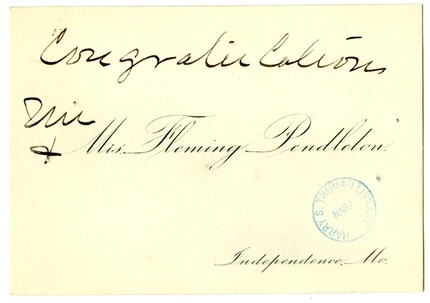 Congratulations
Mr
& Mrs. Fleming Pendleton.
HARRY S. TRUMAN LIBRARY
NARA
Independence, Mo.